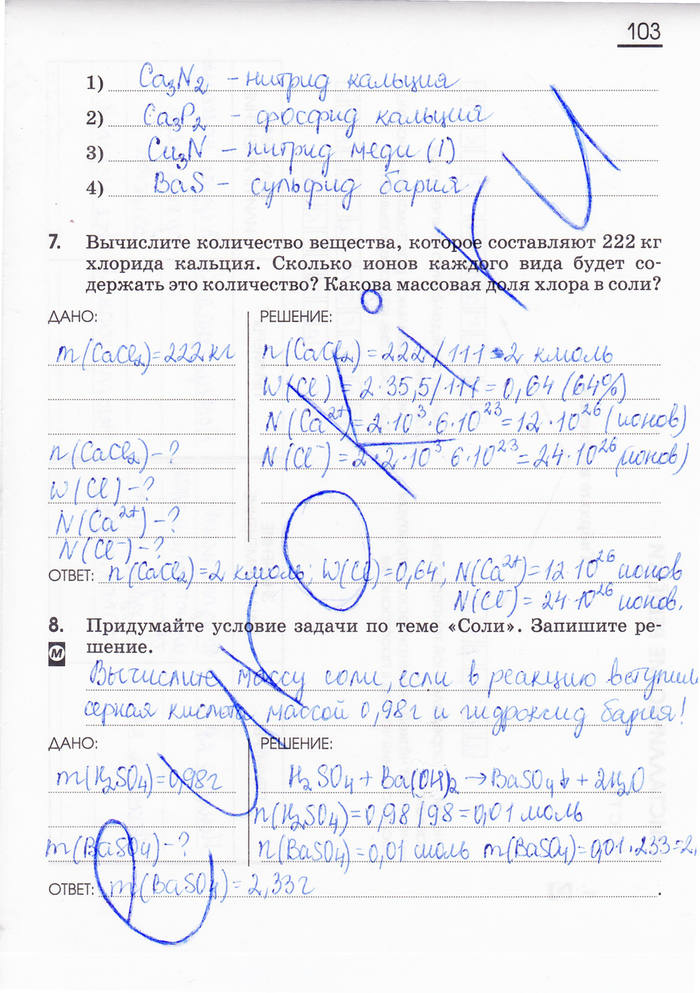 103
1) Ca₃N₂ – нитрид кальция
2) Ca₃P₂ – фосфид кальция
3) Cu₃N – нитрид меди (I)
4) BaS – сульфид бария
7. Вычислите количество вещества, которое составляют 222 кг
хлорида кальция. Сколько ионов каждого вида будет со-
держать это количество? Какова массовая доля хлора в соли?
ДАНО:
m(CaCl₂)=222 кг
n(CaCl₂)–?
W(Cl)–?
N(Ca²⁺)–?
N(Cl⁻)–?
РЕШЕНИЕ:
n(CaCl₂)=222/111=2 кмоль
W(Cl)=2·35,5/111=0,64 (64%)
N(Ca²⁺)=2·10³·6·10²³=12·10²⁶ (ионов)
N(Cl⁻)=2·2·10³·6·10²³=24·10²⁶ (ионов)
ОТВЕТ: n(CaCl₂)=2 кмоль; W(Cl)=0,64; N(Ca²⁺)=12·10²⁶ ионов
N(Cl⁻)=24·10²⁶ ионов.
8. Придумайте условие задачи по теме «Соли». Запишите ре-
М шение.
Вычислите массу соли, если в реакцию вступили
серная кислота массой 0,98г и гидроксид бария!
ДАНО:
m(H₂SO₄)=0,98г
m(BaSO₄)–?
РЕШЕНИЕ:
H₂SO₄ + Ba(OH)₂ → BaSO₄↓ + 2H₂O
n(H₂SO₄)=0,98/98=0,01 моль
n(BaSO₄)=0,01 моль m(BaSO₄)=0,01·233=2,
ОТВЕТ: m(BaSO₄)=2,33г